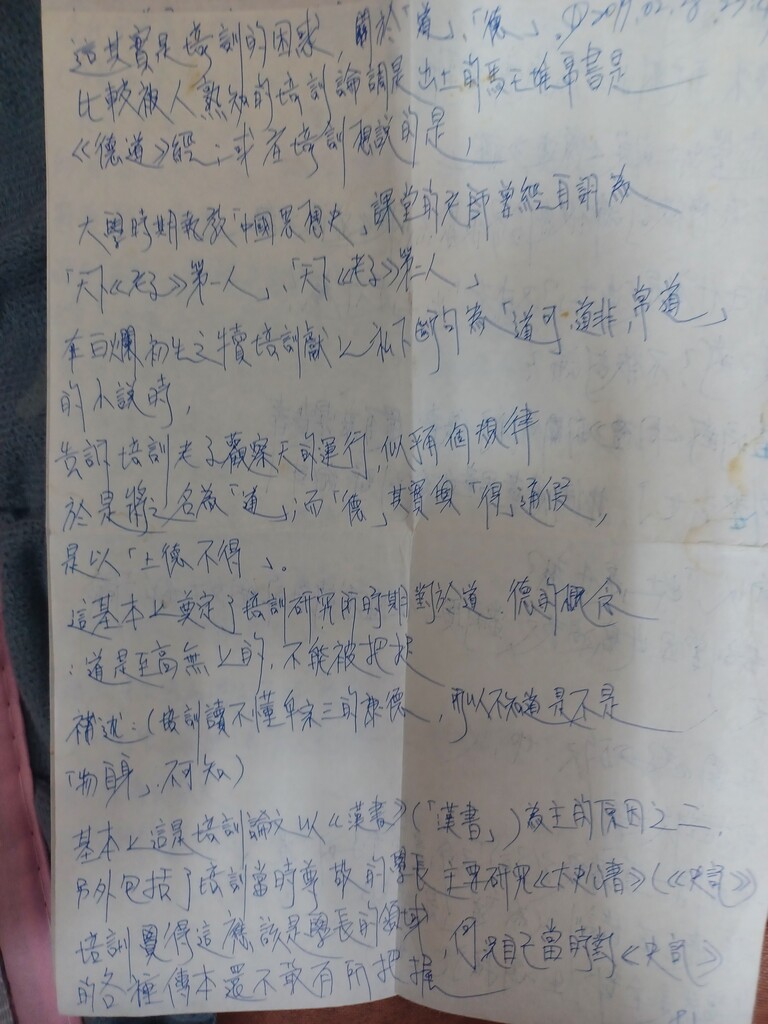 這其實是培訓的困惑,關於「道」、「德」.
比較被人熟知的培訓論調是出土的馬王堆帛書是
《德道》經;或者培訓想說的是,
大學時期教「中國思想史」課堂的老師曾經自詡為
「天下《老子》第一人」、「天下《老子》第二人」
在白爛初生之犢培訓獻上私下斷句為「道可,道非,常道」
的小說時,
告訴培訓老子觀察天的運行,似乎有個規律
於是將之名為「道」;而「德」其實與「得」通假,
是以「上德不得」。
這基本上奠定了培訓研究所時期對於道、德的概念
:道是至高無上的,不能被把捉
補述:(培訓讀不懂牟宗三的康德,所以不知道是不是
「物自身」不可知)
基本上這是培訓論文以《漢書》(「漢書」)為主的原因之二,
另外包括了培訓當時尊敬的學長主要研究《太史公書》(《史記》)
培訓覺得這應該是學長的領域,何況自己當時對《史記》
的各種傳本還不敢有所把握